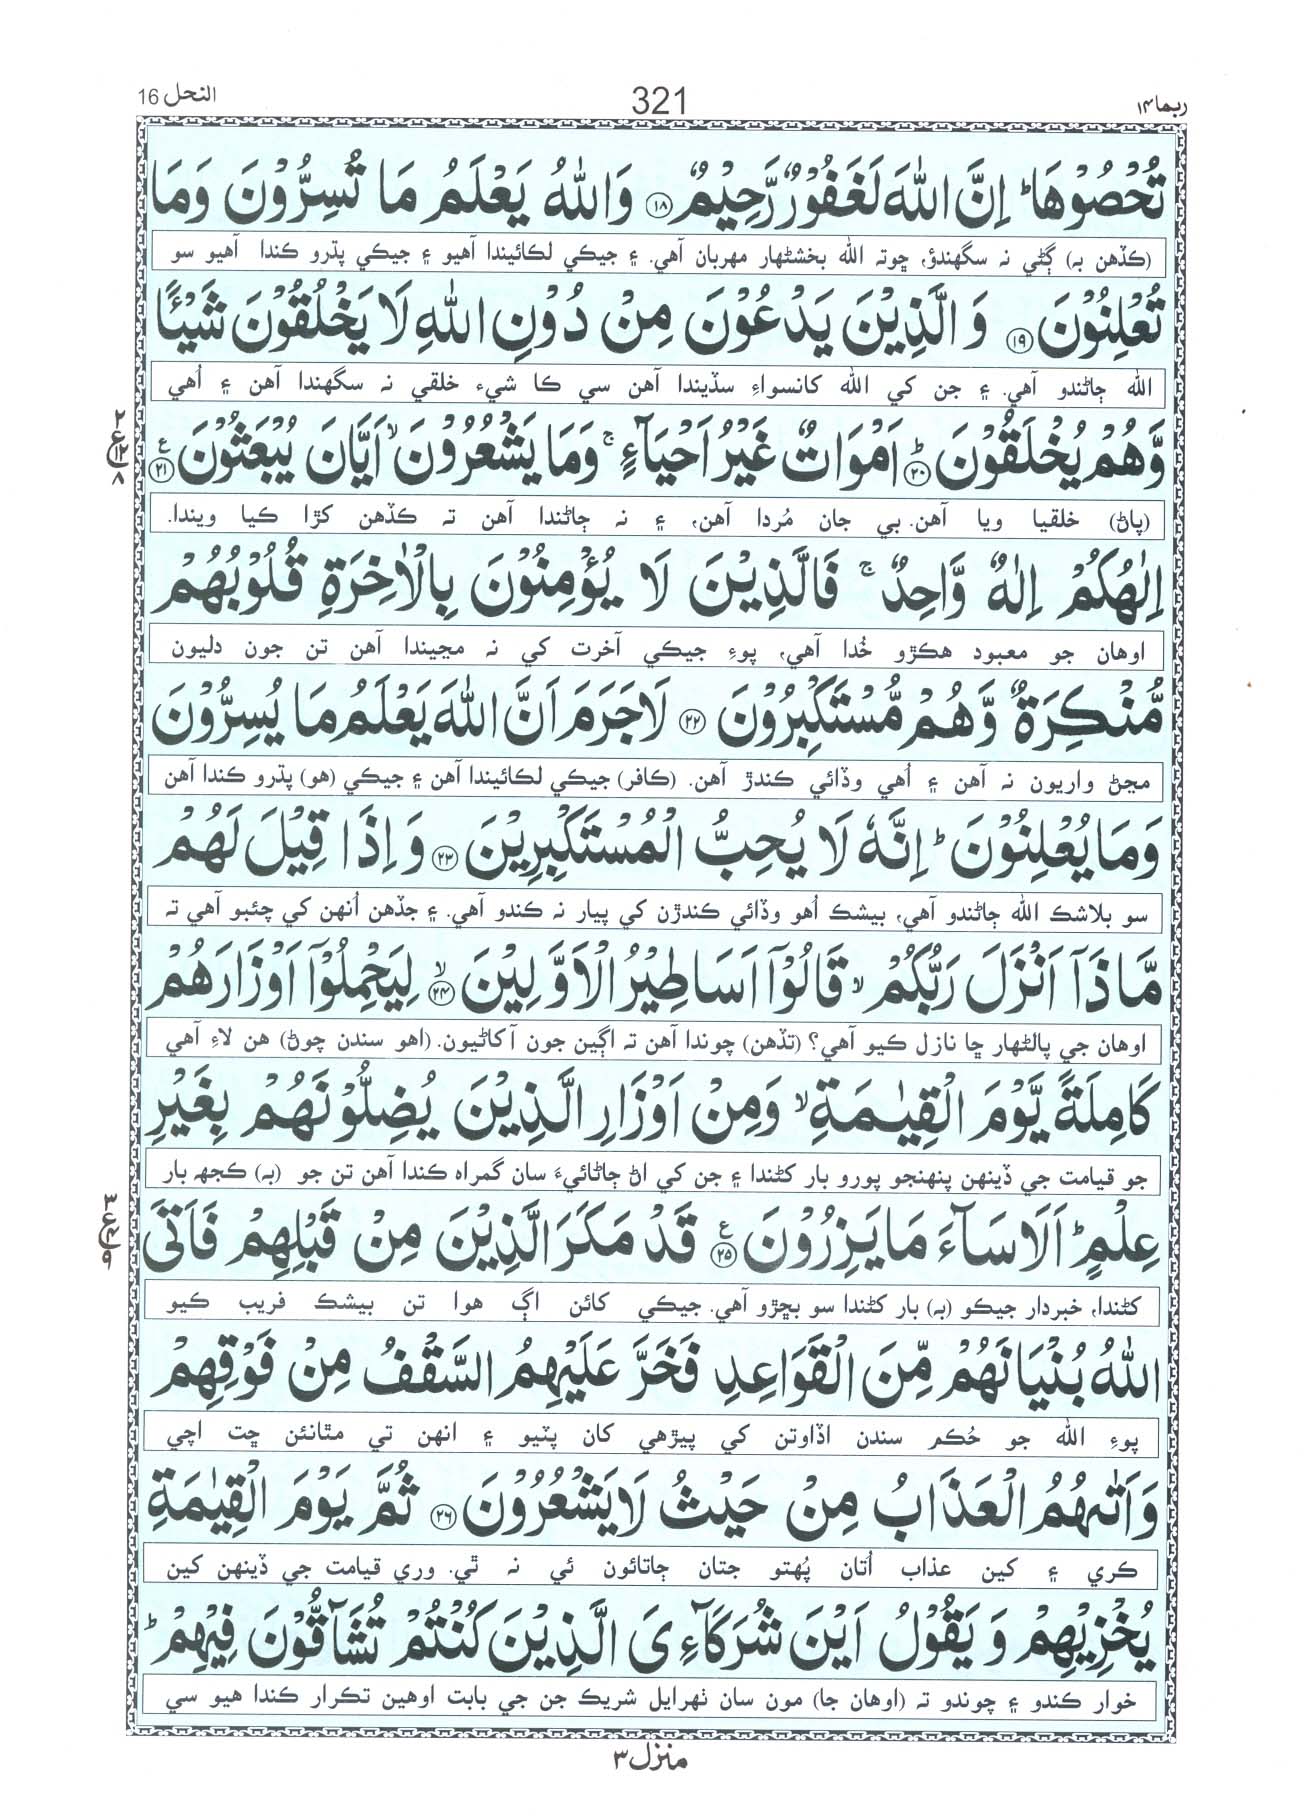 ربما۱۴
321
النحل 16
تُحْصُوْهَا ؕ اِنَّ اللّٰهَ لَغَفُوْرٌ رَّحِيْمٌ ﴿۱۸﴾ وَاللّٰهُ يَعْلَمُ مَا تُسِرُّوْنَ وَمَا
(ڪڏهن به) ڳڻي نہ سگهندؤ، ڇوتہ الله بخشڻهار مهربان آهي. ۽ جيڪي لڪائيندا آهيو ۽ جيڪي پڌرو ڪندا آهيو سو
تُعْلِنُوْنَ ﴿۱۹﴾ وَالَّذِيْنَ يَدْعُوْنَ مِنْ دُوْنِ اللّٰهِ لَا يَخْلُقُوْنَ شَيْـًٔا
الله ڄاڻندو آهي. ۽ جن کي الله کانسواءِ سڏيندا آهن سي ڪا شيء خلقي نہ سگهندا آهن ۽ اُهي
وَّهُمْ يُخْلَقُوْنَ ؕ ﴿۲۰﴾ اَمْوَاتٌ غَيْرُ اَحْيَآءٍ ۚ وَمَا يَشْعُرُوْنَ ۙ اَيَّانَ يُبْعَثُوْنَ ﴿۲۱﴾ ع
۲ ع ۱۲ ۸
(پاڻ) خلقيا ويا آهن. بي جان مُردا آهن، ۽ نہ ڄاڻندا آهن تہ ڪڏهن کڙا کيا ويندا.
اِلٰهُكُمْ اِلٰهٌ وَّاحِدٌ ۚ فَالَّذِيْنَ لَا يُؤْمِنُوْنَ بِالْاٰخِرَةِ قُلُوْبُهُمْ
اوهان جو معبود هڪڙو خُدا آهي، پوءِ جيڪي آخرت کي نہ مڃيندا آهن تن جون دليون
مُّنْكِرَةٌ وَّهُمْ مُّسْتَكْبِرُوْنَ ﴿۲۲﴾ لَا جَرَمَ اَنَّ اللّٰهَ يَعْلَمُ مَا يُسِرُّوْنَ
مڃڻ واريون نہ آهن ۽ اُهي وڏائي ڪندڙ آهن. (ڪافر) جيڪي لڪائيندا آهن ۽ جيڪي (هو) پڌرو ڪندا آهن
وَمَا يُعْلِنُوْنَ ؕ اِنَّهٗ لَا يُحِبُّ الْمُسْتَكْبِرِيْنَ ﴿۲۳﴾ وَاِذَا قِيْلَ لَهُمْ
سو بلاشڪ الله ڄاڻندو آهي، بيشڪ اُهو وڏائي ڪندڙن کي پيار نہ ڪندو آهي. ۽ جڏهن اُنهن کي چئبو آهي تہ
مَّاذَآ اَنْزَلَ رَبُّكُمْ ۙ قَالُوْٓا اَسَاطِيْرُ الْاَوَّلِيْنَ ۙ ﴿۲۴﴾ لِيَحْمِلُوْٓا اَوْزَارَهُمْ
اوهان جي پالڻهار ڇا نازل ڪيو آهي؟ (تڏهن) چوندا آهن تہ اڳين جون آکاڻيون. (اهو سندن چوڻ) هن لاءِ آهي
كَامِلَةً يَّوْمَ الْقِيٰمَةِ ۙ وَمِنْ اَوْزَارِ الَّذِيْنَ يُضِلُّوْنَهُمْ بِغَيْرِ
جو قيامت جي ڏينهن پنهنجو پورو بار کڻندا ۽ جن کي اڻ ڄاڻائيءَ سان گمراه ڪندا آهن تن جو (به) ڪجهہ بار
عِلْمٍ ؕ اَلَا سَآءَ مَا يَزِرُوْنَ ﴿۲۵﴾ ع قَدْ مَكَرَ الَّذِيْنَ مِنْ قَبْلِهِمْ فَاَتَى
۳ ع ۹
کڻندا، خبردار جيڪو (به) بار کڻندا سو بڇڙو آهي. جيڪي کائن اڳ هوا تن بيشڪ فريب ڪيو
اللّٰهُ بُنْيَانَهُمْ مِّنَ الْقَوَاعِدِ فَخَرَّ عَلَيْهِمُ السَّقْفُ مِنْ فَوْقِهِمْ
پوءِ الله جو حُڪم سندن اڏاوتن کي پيڙهي کان پٽيو ۽ انهن تي مٿانئن ڇت اچي
وَاَتٰىهُمُ الْعَذَابُ مِنْ حَيْثُ لَا يَشْعُرُوْنَ ﴿۲۶﴾ ثُمَّ يَوْمَ الْقِيٰمَةِ
ڪري ۽ کين عذاب اُتان پُهتو جتان ڄاتائون ئي نہ ٿي. وري قيامت جي ڏينهن کين
يُخْزِيْهِمْ وَيَقُوْلُ اَيْنَ شُرَكَآءِىَ الَّذِيْنَ كُنْتُمْ تُشَآقُّوْنَ فِيْهِمْ ؕ
خوار ڪندو ۽ چوندو تہ (اوهان جا) مون سان ٺهرايل شريڪ جن جي بابت اوهين تڪرار ڪندا هيو سي
منزل۳